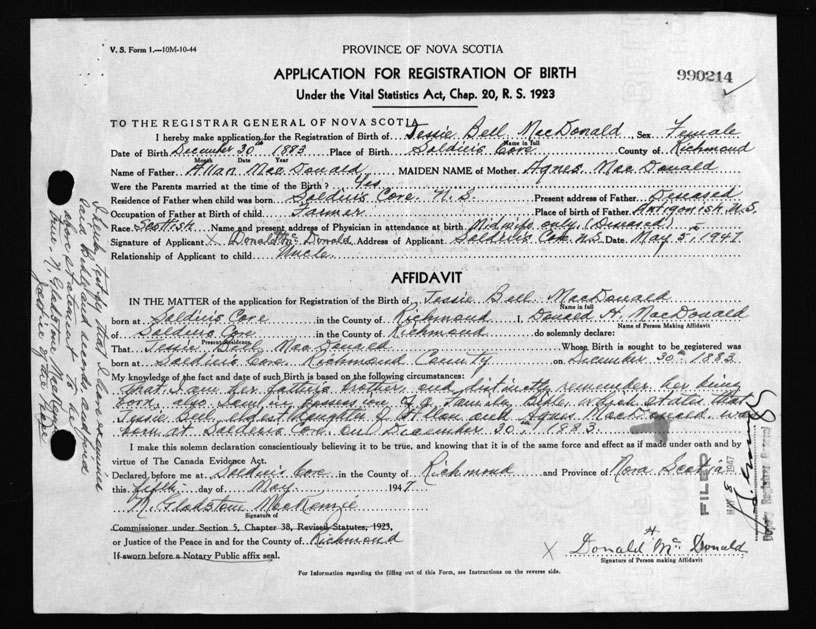 V. S. Form 1.—10M-10-44
PROVINCE OF NOVA SCOTIA
APPLICATION FOR REGISTRATION OF BIRTH
Under the Vital Statistics Act, Chap. 20, R. S. 1923
990214
TO THE REGISTRAR GENERAL OF NOVA SCOTIA
I hereby make application for the Registration of Birth of Jessie Bell MacDonald Sex Female
Name in full
Date of Birth December 30th 1883 Place of Birth Soldier's Cove County of Richmond
Month Date Year
Name of Father Allan MacDonald MAIDEN NAME of Mother Agnes MacDonald
Were the Parents married at the time of the Birth? Yes
Residence of Father when child was born Soldier's Cove N.S. Present address of Father Deceased
Occupation of Father at Birth of child Farmer Place of birth of Father Antigonish N.S.
Race Scottish Name and present address of Physician in attendance at birth Midwife only (Deceased)
Signature of Applicant X Donald H McDonald Address of Applicant Soldier's Cove N.S. Date May 5, 1947
Relationship of Applicant to child Uncle
AFFIDAVIT
IN THE MATTER of the application for Registration of the Birth of Jessie Bell MacDonald
Name in full
born at Soldier's Cove in the County of Richmond I, Donald H. MacDonald
Name of Person Making Affidavit
of Soldier's Cove in the County of Richmond do solemnly declare:
Present Residence
That Jessie Bell MacDonald Whose Birth is sought to be registered was
born at Soldier's Cove, Richmond County on December 30th 1883
My knowledge of the fact and date of such Birth is based on the following circumstances:
that I am her father's brother and distinctly remember her being
born, also I am in possession of a family Bible, which states that
Jessie Bell, daughter of Allan and Agnes MacDonald was
born at Soldier's Cove on December 30th, 1883
I make this solemn declaration conscientiously believing it to be true, and knowing that it is of the same force and effect as if made under oath and by
virtue of The Canada Evidence Act.
Declared before me at Soldier's Cove in the County of Richmond and Province of Nova Scotia
this fifth day of May 1947
N. Gladstone MacKenzie
Signature of
Commissioner under Section 5, Chapter 38, Revised Statutes, 1923,
or Justice of the Peace in and for the County of Richmond
If sworn before a Notary Public affix seal.
X Donald H McDonald
Signature of Person making Affidavit
For Information regarding the filling out of this Form, see Instructions on the reverse side.
I hereby certify that I have examined
said Bible and records and find
above statement to be
true. N. Gladstone MacKenzie
Justice of the Peace
FILED
8 1947
Deputy Registrar General